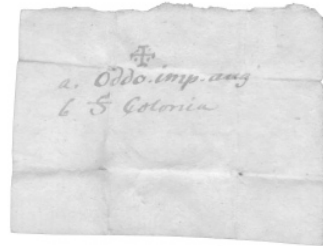 ✠
a. Oddo. imp. aug
b S Colonia